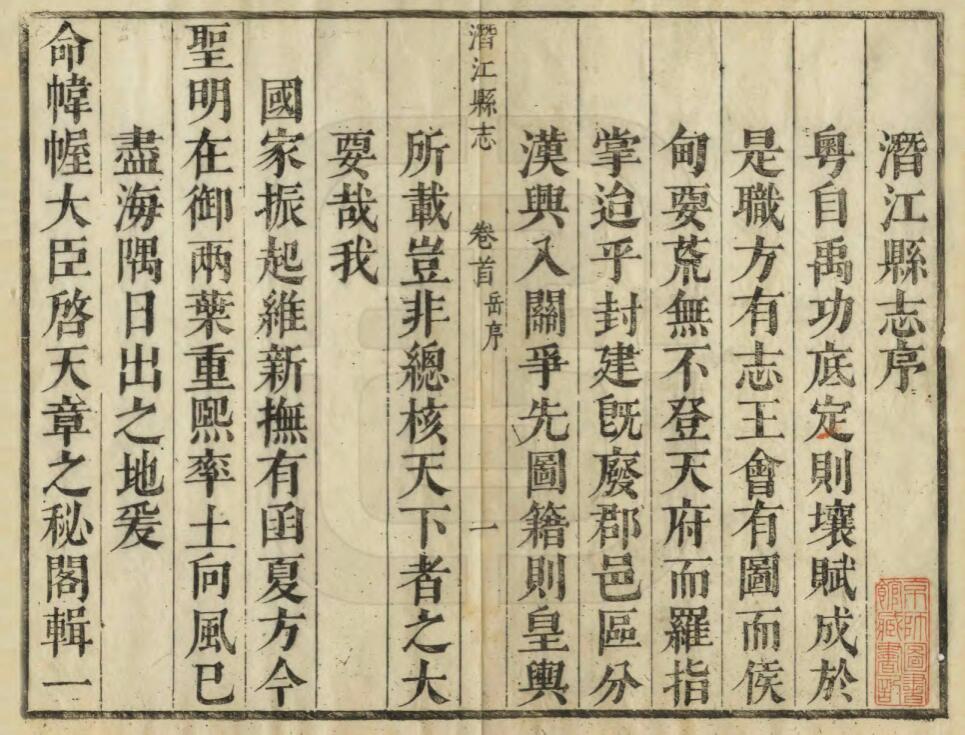 潛江縣志序
粵自禹功底定則壤賦成於
是職方有志王會有圖而侯
甸要荒無不登天府而羅指
掌迨乎封建旣廢郡邑區分
漢興入關爭先圖籍則皇輿
所載豈非總核天下者之大
要哉我
潛江縣志 卷首 岳序 一
國家振起維新撫有函夏方今
聖明在御兩葉重熙率土向風已
盡海隅日出之地爰
命幃幄大臣啓天章之秘閣輯一